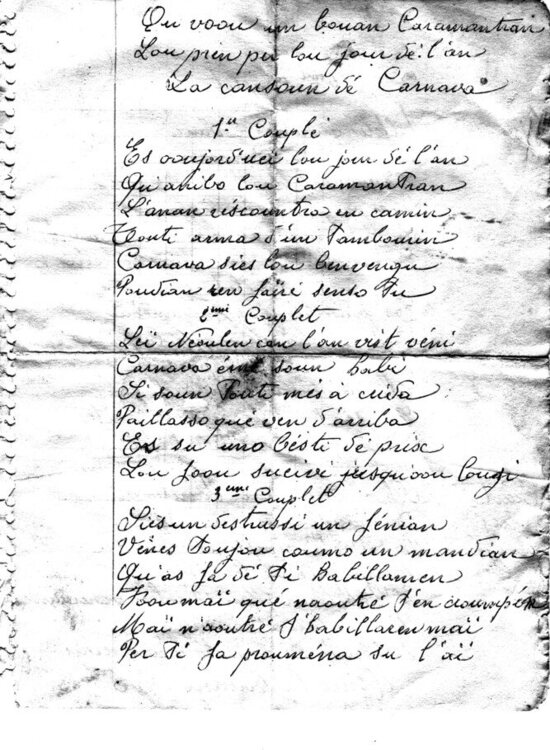 Qu voou un bouan Caramantran
Lou prin per lou jour dé l'an
La cansoun dé Carnava
1er Couplé
Es aoujourd'uei lou jour dé l'an
Qu'aribo lou Caramantran
L'anan rescountra en camin
Touti arma d'un Tambourin
Carnava siès lou benvengu
Poudian ren faïré senso tu
2ème Couplet
Leï Néoulen can l'an vist veni
Carnava émé soun babi
Si soun touti més à crida
Paillasso qué ven d'arriba
Es su uno bésti dé prix
Lou foou suivre jusqu'oou lougi
3ème Couplet
Siès un destrussi un fénian
Vènes toujou coumo un mandian
Qu'as fa dé ti babillamen
Foou maï qué naoutré t'en
Maï n'aoutré t'babillaren maï
Per ti fa prouména su l'aï